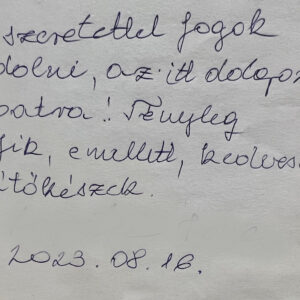 szeretettel fogok
dolni, az itt dolgoz
patra! Tényleg
jik, emellett, kedves
ítőkészek.
2023.08.16.